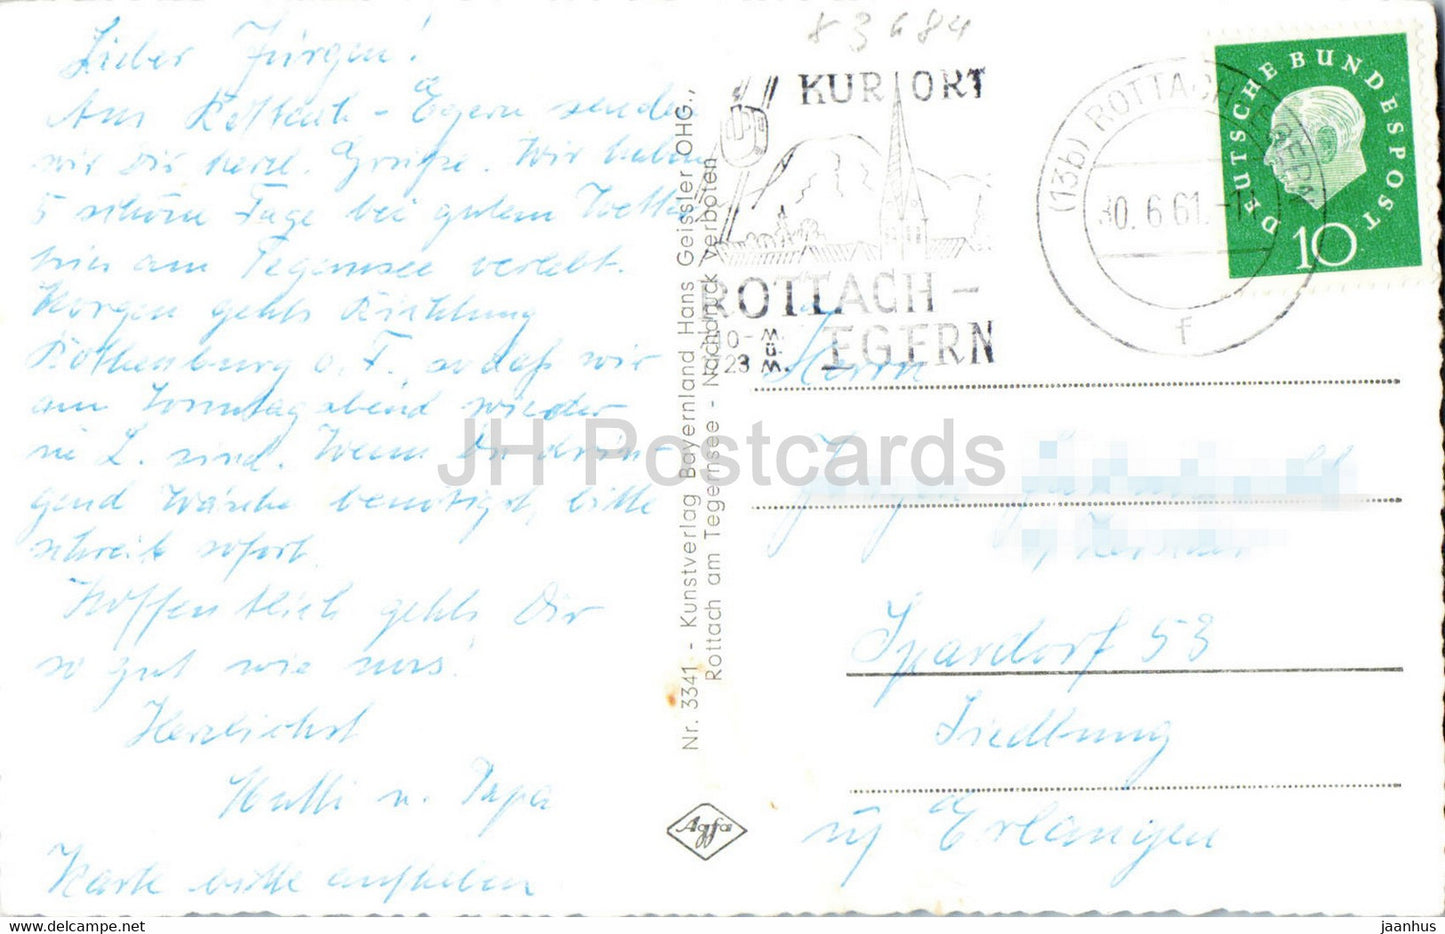 Lieber Jürgen!
Aus Rottach-Egern senden
wir Dir herzl. Grüße. Wir haben
5 schöne Tage bei gutem Wetter
hier am Tegernsee verlebt.
Morgen gehts Richtung
Rothenburg o. T., so daß wir
am Sonntagabend wieder
in L. sind. Wenn Du drin-
gend Wäsche benötigst, bitte
schreib sofort.
Hoffentlich gehts Dir
so gut wie uns!
Herzlichst
Mutti u. Papa
Karte bitte aufheben
Nr. 3341 - Kunstverlag Bayernland Hans Geissler OHG.,
Rottach am Tegernsee - Nachdruck verboten
Agfa
83684
KURORT
ROTTACH-
EGERN
M. u. M.
(13b) ROTTACH-EGERN
30.6.61.
f
DEUTSCHE BUNDESPOST
10
Herrn
Jürgen
Spardorf 53
Siedlung
üb/ Erlangen
JH Postcards
hippostcard.com
jaanhus